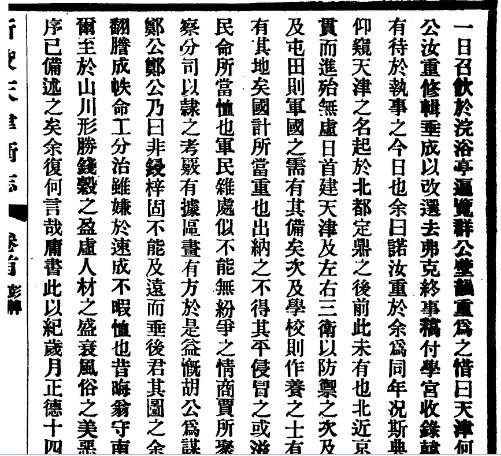 一日召飲於浣浴亭遍覽群公壁韻重爲之惜曰天津何
公汝重修輯垂成以改選去弗克終事稿付學宮收錄
有待於執事之今日也余曰諾汝重於余爲同年况斯典
仰窺天津之名起於北都定鼎之後前此未有也北近京
貫而進殆無虛日首建天津及左右三衛以防禦之次及
及屯田則軍國之需有其備矣次及學校則作養之士有
有其地矣國計所當重也出納之不得其平侵冒之或滋
民命所當恤也軍民雜處似不能無紛爭之情商賈所聚
察分司以隸之考覈有據區畫有方於是益慨胡公爲謀
鄭公鄭公乃曰非鋟梓固不能及遠而垂後君其圖之余
翻謄成帙命工分治雖嫌於速成不暇恤也昔晦翁守南
爾至於山川形勝錢穀之盈虛人材之盛衰風俗之美惡
序已備述之矣余復何言哉庸書此以紀歲月正德十四
天津衛志
卷首